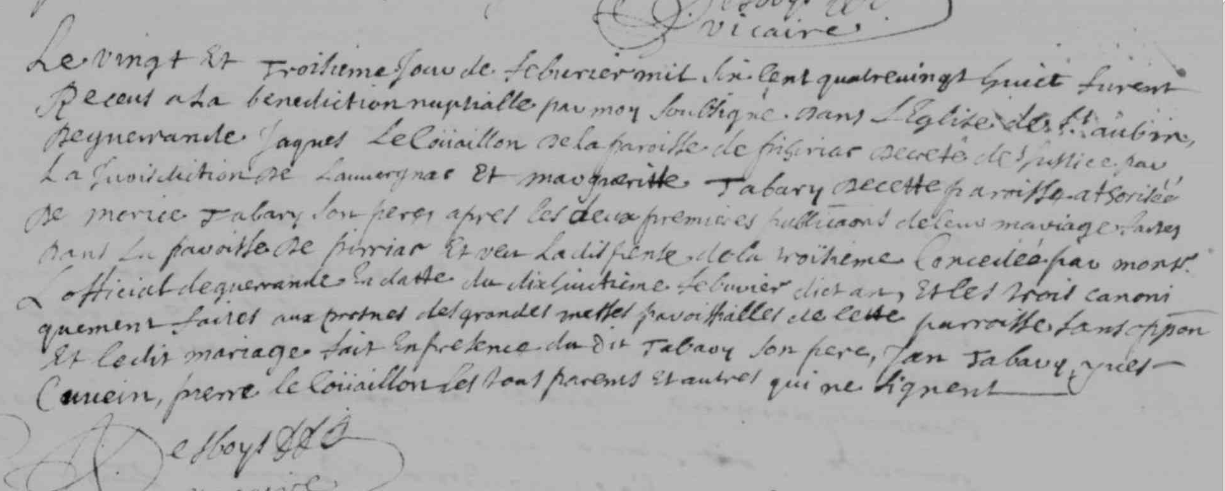 vicaire
Le vingt Et Troisieme Jour de feburier mil six cent quatrevingt huict furent
Receus a La benediction nuptialle par moy soubsigné dans L'Eglise de St aubin,
de guerrande Jaques Le Coüaillon de la paroisse de piriac decreté de Justice par
La Jurisdiction de Lauvergnac Et marguaritte Tabary de cette paroisse athorisée
de morice Tabary son pere, apres les deux premieres publicaons de leur mariage faites
dans La paroisse de pirriac Et veu La dispense de la troisieme Concedée par monsr.
L'official de guerrande En datte du dixhuitieme feburier dict an, Et les trois canoni
quement faites aux prosnes des grandes messes paroissialles de cette parroisse sans oppon
Et ledit mariage fait En presence du dit Tabary son pere, Jan Tabary, yves
pierre le Coüaillon tous parents Et autres qui ne signent
Desboys